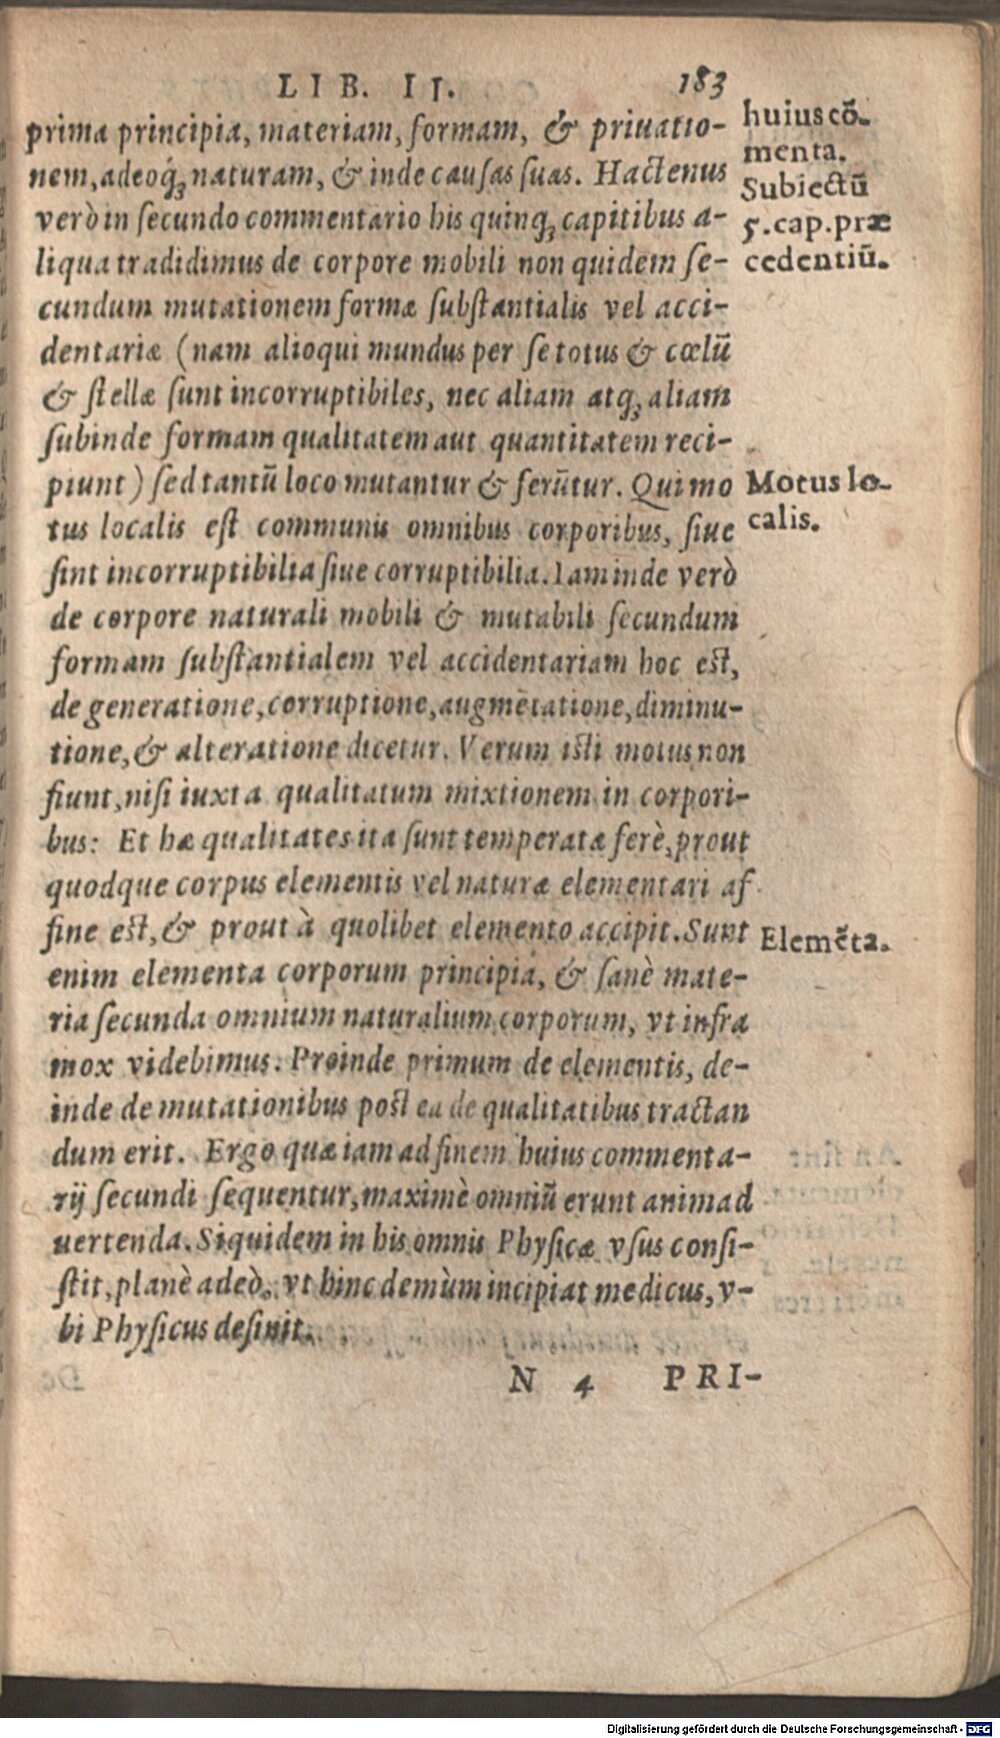 LIB. II. 183
prima principia, materiam, formam, & priuatio-
nem, adeoq́ꝫ naturam, & inde causas suas. Hactenus
verò in secundo commentario his quinqꝫ capitibus a-
liqua tradidimus de corpore mobili non quidem se-
cundum mutationem formæ substantialis vel acci-
dentariæ (nam alioqui mundus per se totus & cœlū
& stellæ sunt incorruptibiles, nec aliam atqꝫ aliam
subinde formam qualitatem aut quantitatem reci-
piunt) sed tantū loco mutantur & ferūtur. Qui mo
tus localis est communis omnibus corporibus, siue
sint incorruptibilia siue corruptibilia. Iam inde verò
de corpore naturali mobili & mutabili secundum
formam substantialem vel accidentariam hoc est,
de generatione, corruptione, augmētatione, diminu-
tione, & alteratione dicetur. Verum isti motus non
fiunt, nisi iuxta qualitatum mixtionem in corpori-
bus: Et hæ qualitates ita sunt temperatæ ferè, prout
quodque corpus elementis vel naturæ elementari af
fine est, & prout à quolibet elemento accipit. Sunt
enim elementa corporum principia, & sanè mate-
ria secunda omnium naturalium corporum, vt infra
mox videbimus. Proinde primum de elementis, de-
inde de mutationibus post ea de qualitatibus tractan
dum erit. Ergo quæ iam ad finem huius commenta-
rij secundi sequentur, maximè omniū erunt animad
uertenda. Siquidem in his omnis Physicæ vsus consi-
stit, planè adeò, vt hinc demùm incipiat medicus, v-
bi Physicus desinit.
huius cō-
menta.
Subiectū
5. cap. præ
cedentiū.
Motus lo-
calis.
Elemēta.
N 4 PRI-
Digitalisierung gefördert durch die Deutsche Forschungsgemeinschaft - DFG